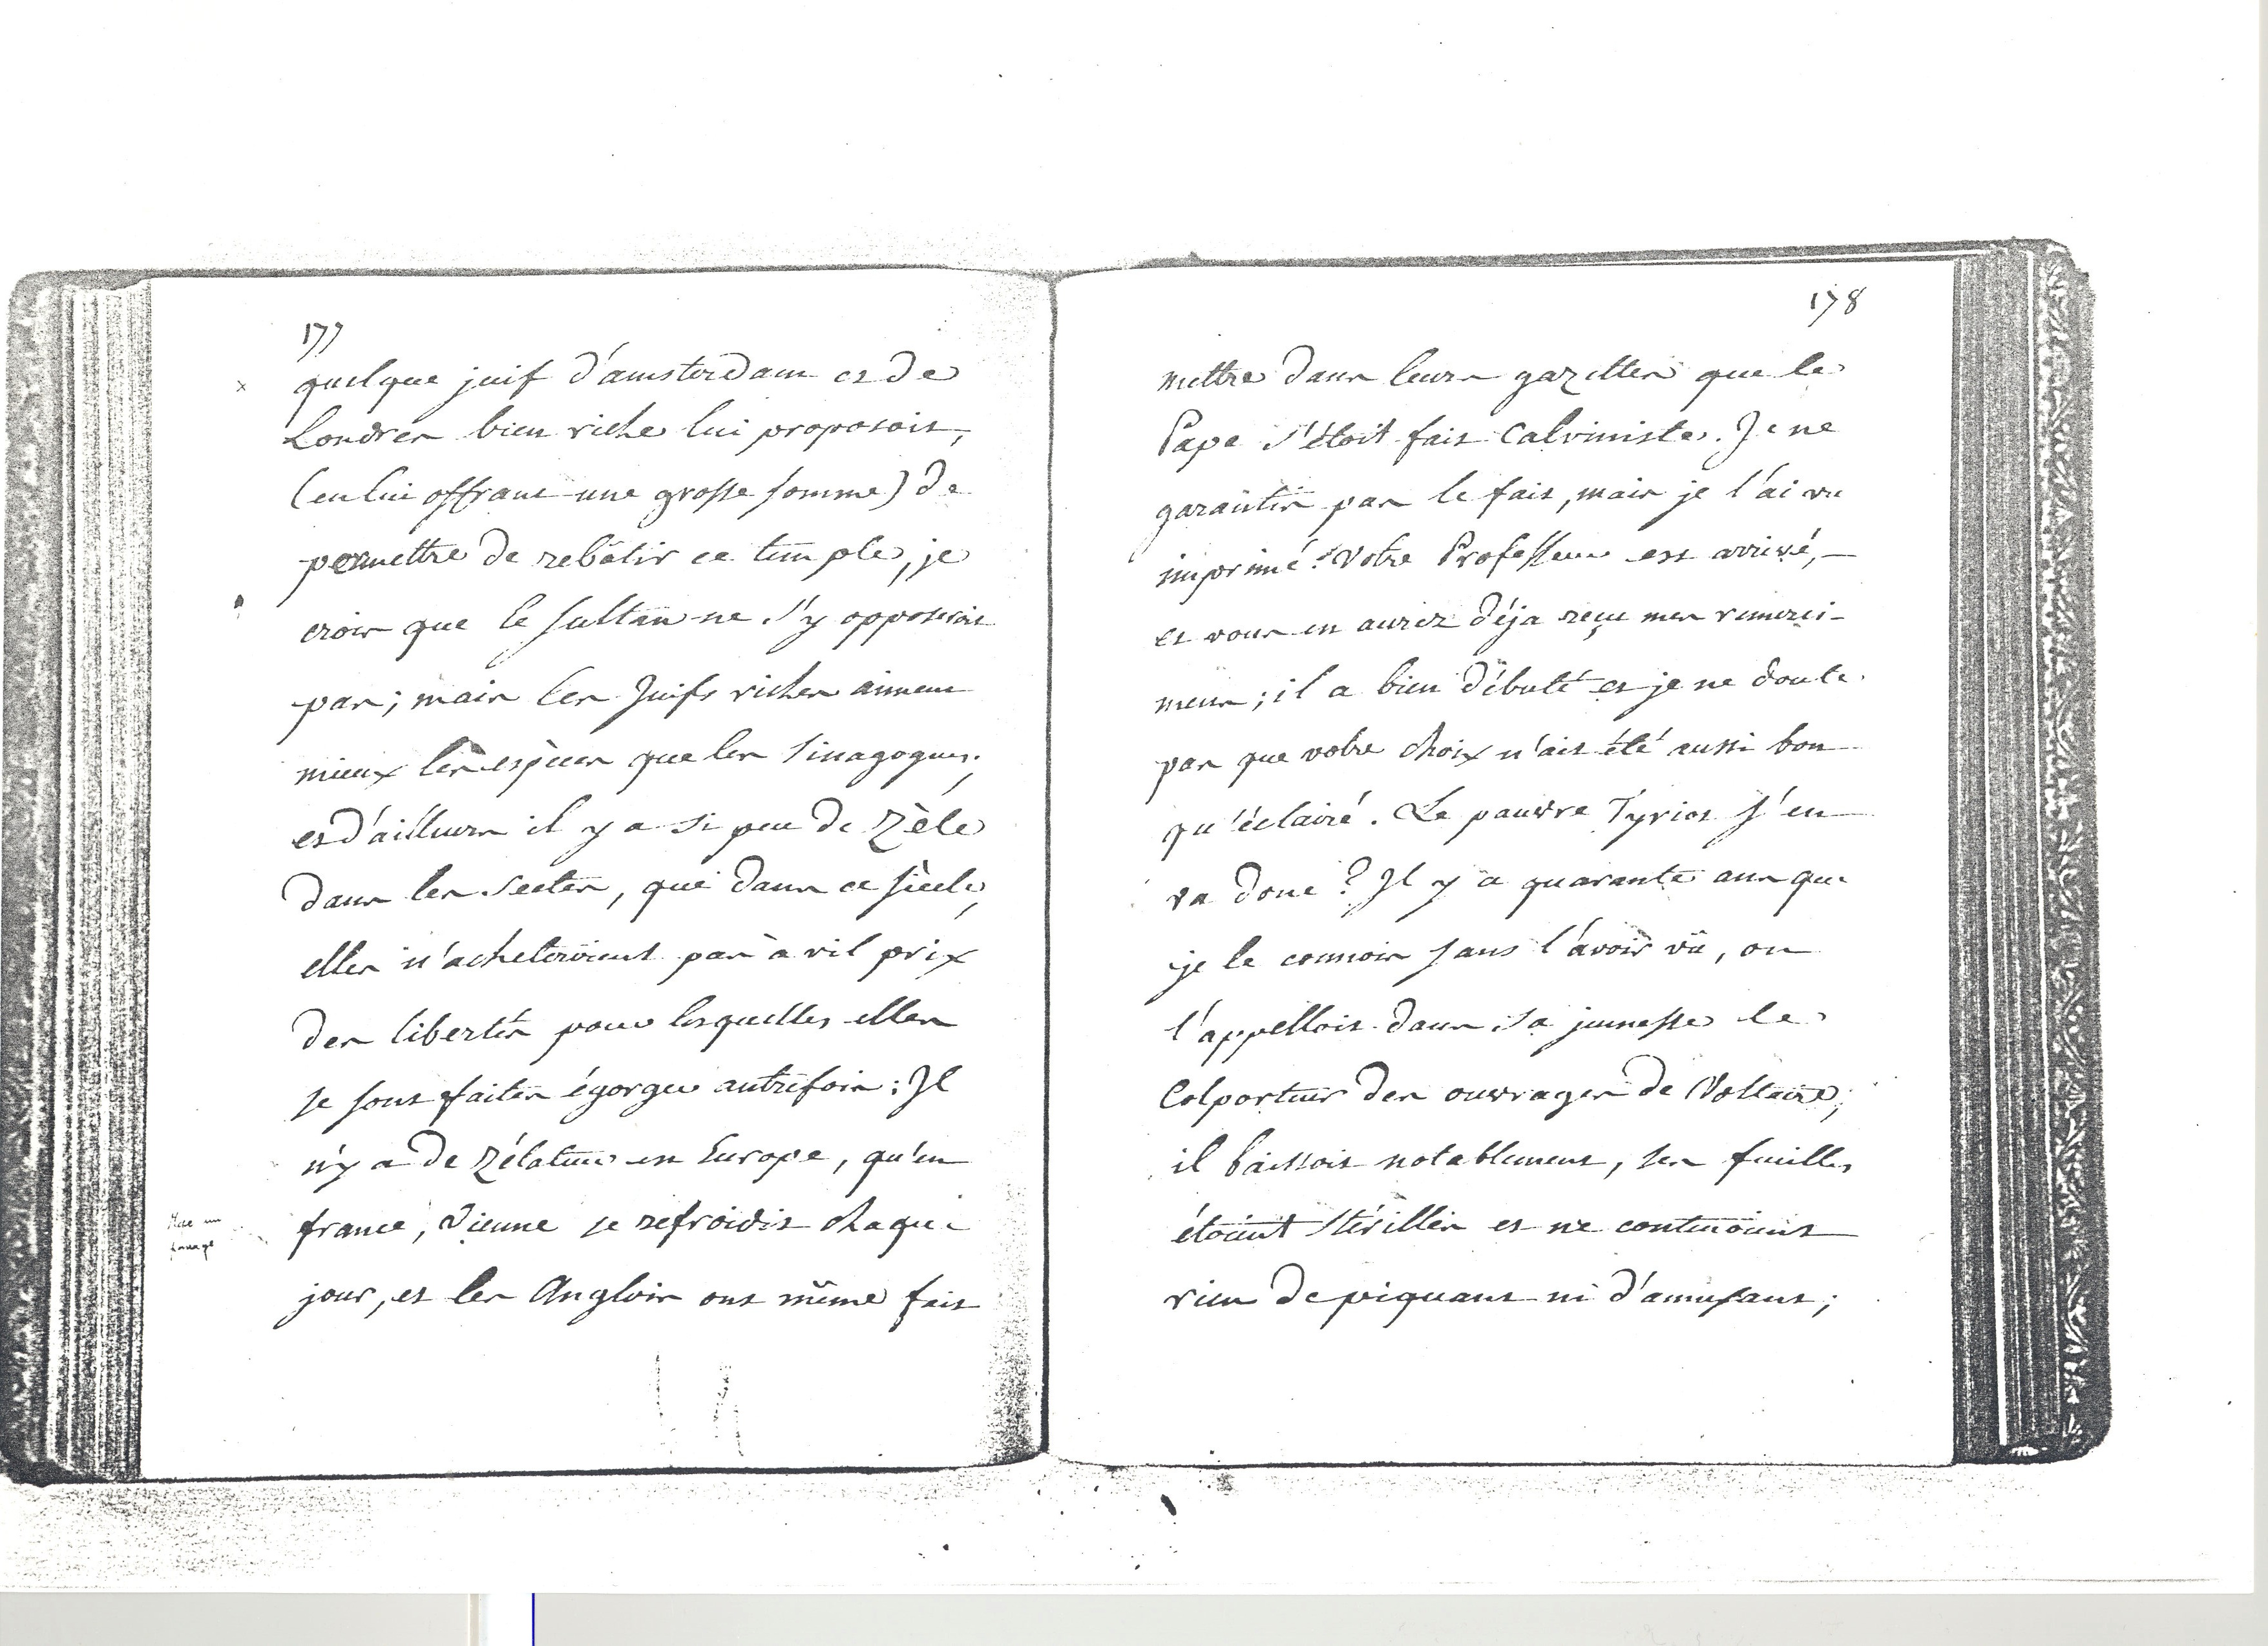 177
x quelque juif d'amsterdam et de
Londres bien riche lui proposoit,
(en lui offrant une grosse somme) de
permettre de rebâtir ce temple, je
crois que le sultan ne s'y opposeroit
pas; mais les Juifs riches aiment
mieux les espèces que les Sinagogues;
et d'ailleurs il y a si peu de Zèle
dans les Sectes, que dans ce siècle,
elles n'acheteroient pas à vil prix
des libertés pour lesquelles elles
se sont faites égorger autrefois: Il
n'y a de Zélateurs en Europe, qu'en
france, Vienne se refroidit chaque
jour, et les Anglois ont même fait
178
mettre dans leurs gazettes que le
Pape s'étoit fait Calviniste. Je ne
garantis pas le fait, mais je l'ai vu
imprimé. Votre Professeur est arrivé,
et vous en aurez déja reçu mes remerci-
mens; il a bien débuté et je ne doute
pas que votre choix n'ait été aussi bon
qu'éclairé. Le pauvre Tyriot s'en
va donc? Il y a quarante ans que
je le connois sans l'avoir vû, on
l'appelloit dans sa jeunesse le
Colporteur des ouvrages de Voltaire;
il baissoit notablement, ses feuilles
étoient stérilles et ne contenoient
rien de piquant ni d'amusant;